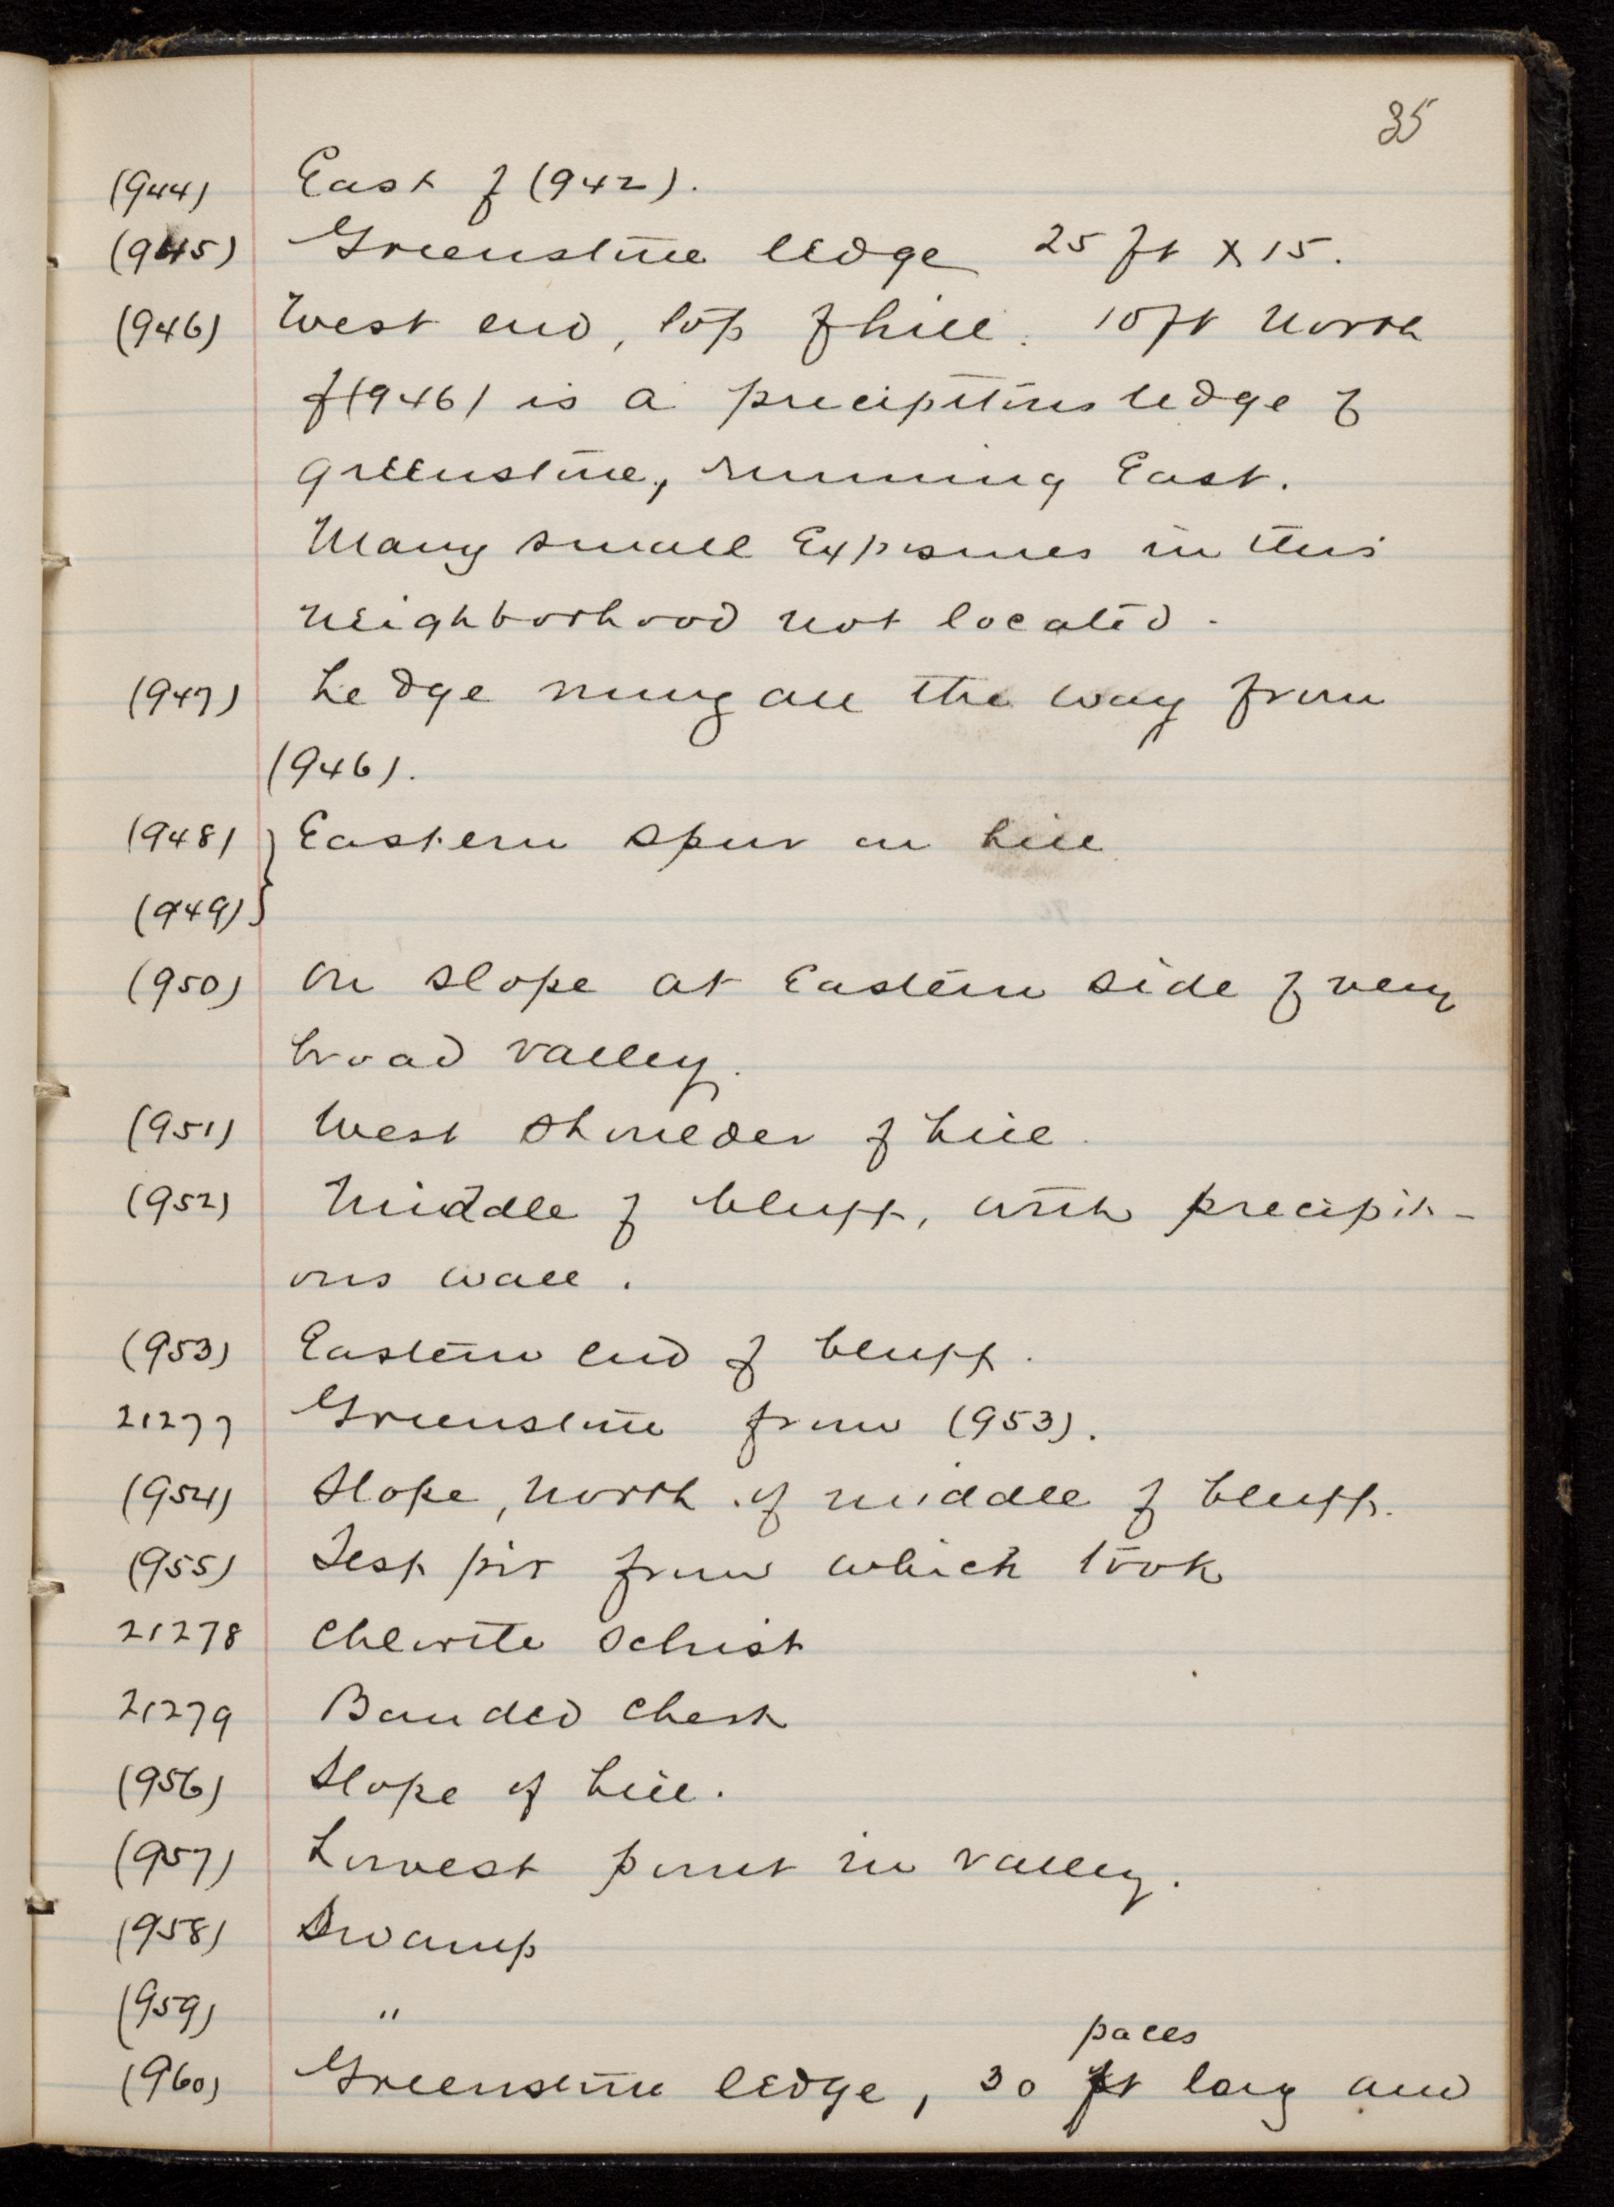 35
(944) East of (942).
(945) Greenstone ledge 25 ft x 15.
(946) West end, top of hill. 10 ft North
of (946) is a precipitous ledge of
greenstone, running East.
Many small Exposures in this
neighborhood not located.
(947) Ledge rung all the way from
(946).
(948) } Eastern spur on hill
(949) }
(950) On slope at Eastern side of very
broad valley.
(951) West shoulder of hill.
(952) Middle of bluff, with precipit-
ous wall.
(953) Eastern end of bluff.
21277 Greenstone from (953).
(954) Slope, north of middle of bluff.
(955) Test pit from which took
21278 Chlorite schist
21279 Banded chert
(956) Slope of hill.
(957) Lowest point in valley.
(958) Swamp
(959) "
paces
(960) Greenstone ledge, 30 ft long and